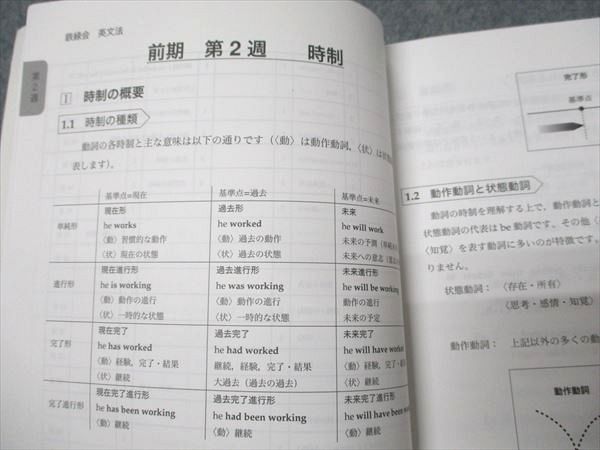 鉄緑会 英文法
前期 第2週 時制
第2週
1 時制の概要
1.1 時制の種類
動詞の各時制と主な意味は以下の通りです(〈動〉は動作動詞,〈状〉は
表します)。
基準点=現在 基準点=過去 基準点=未来
単純形
現在形 過去形 未来
he works he worked he will work
〈動〉習慣的な動作 〈動〉過去の動作 未来の予測
〈状〉現在の状態 〈状〉過去の状態 未来への意志
進行形
現在進行形 過去進行形 未来進行形
he is working he was working he will be working
〈動〉動作の進行 〈動〉動作の進行 動作の進行
〈状〉一時的な状態 〈状〉一時的な状態 未来の予定
完了形
現在完了 過去完了 未来完了
he has worked he had worked he will have
〈動〉経験,完了・結果 継続,経験,完了・結果 〈動〉経験,完了・
〈状〉継続 大過去(過去の過去) 〈状〉継続
完了進行形
現在完了進行形 過去完了進行形 未来完了進行形
he has been working he had been working he will have been
〈動〉継続 〈動〉継続 〈動〉継続
完了形
基準点
1.2 動作動詞と状態動詞
動詞の時制を理解する上で,動作動詞と
状態動詞の代表はbe動詞です。その他〈
〈知覚〉を表す動詞に多いのが特徴です。
りません。
状態動詞: 〈存在・所有〉
〈思考・感情・知覚〉
動作動詞: 上記以外の多くの動
動作動詞